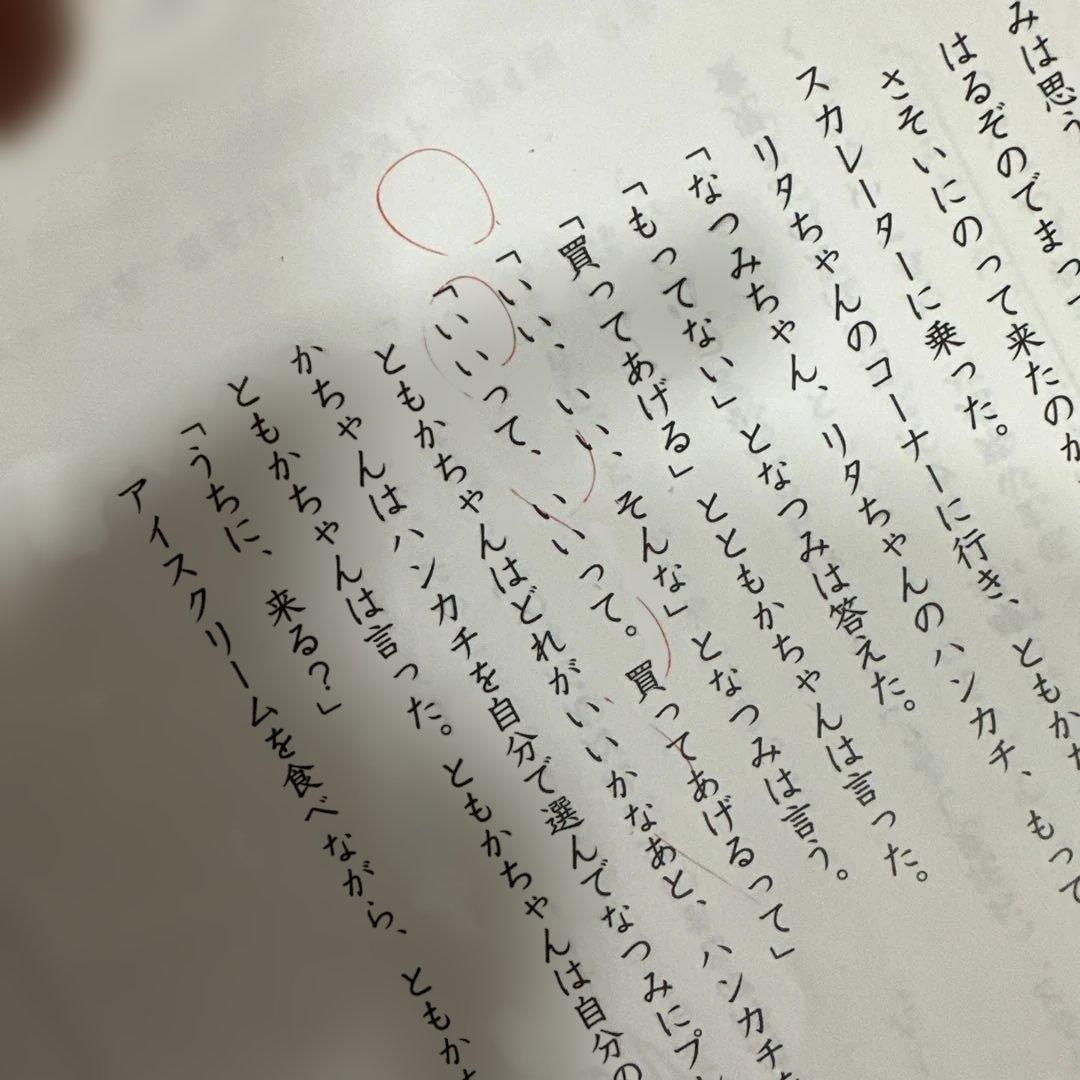 みは思う
はるぞのでまっ
さそいにのって来たのか
スカレーターに乗った。
リタちゃんのコーナーに行き、ともか
「なつみちゃん、リタちゃんのハンカチ、もって
「もってない」となつみは答えた。
「買ってあげる」とともかちゃんは言った。
「いい、いい、そんな」となつみは言う。
「いいって、いいって。買ってあげるって」
ともかちゃんはどれがいいかなあと、ハンカチを
かちゃんはハンカチを自分で選んでなつみにプレ
ともかちゃんは言った。ともかちゃんは自分の
「うちに、来る？」
アイスクリームを食べながら、ともか